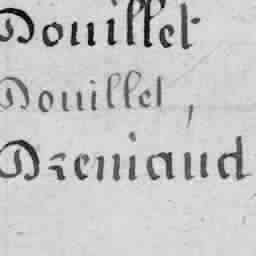 Douillet
Douillet,
Dreniaud